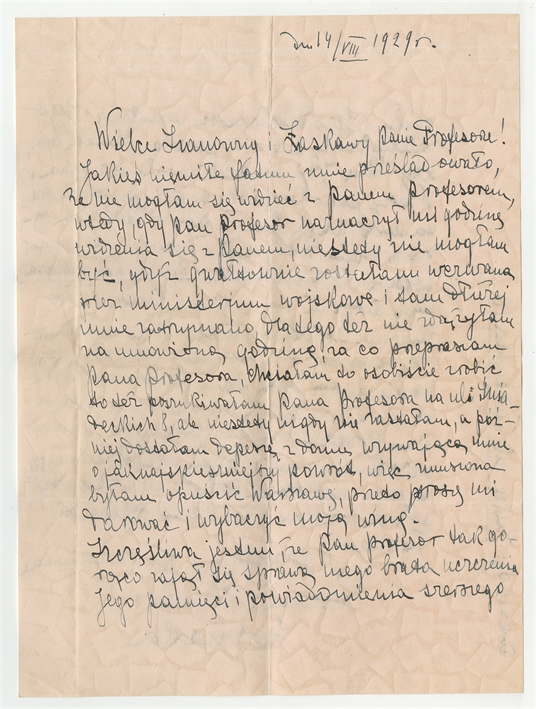 dn 14/VIII 1929 r.
Wielce Szanowny i Łaskawy Panie Profesorze!
Jakieś niemiłe fatum mnie prześladowało,
że nie mogłam się widzieć z Panem Profesorem,
wtedy, gdy Pan Profesor naznaczył mi godzinę
widzenia się z Panem, niestety nie mogłam
być, gdyż gwałtownie zostałam wezwana
przez ministerjum wojskowe i tam dłużej
mnie zatrzymano, dlatego też nie zdążyłam
na umówioną godzinę, za co przepraszam
Pana Profesora, chciałam to osobiście zrobić
to też poszukiwałam Pana Profesora na ul. Śnia-
deckich 8, ale niestety nigdy nie zastałam, a póź-
niej dostałam depeszę z domu, wzywającą mnie
o jaknajśpieszniejszy powrót, więc zmuszona
byłam opuścić Warszawę, przeto proszę mi
darować i wybaczyć moją winę.
Szczęśliwa jestem, że Pan Profesor tak go-
rąco zajął się sprawą mego brata uczczenia
Jego pamięci i powiadomienia szerszego